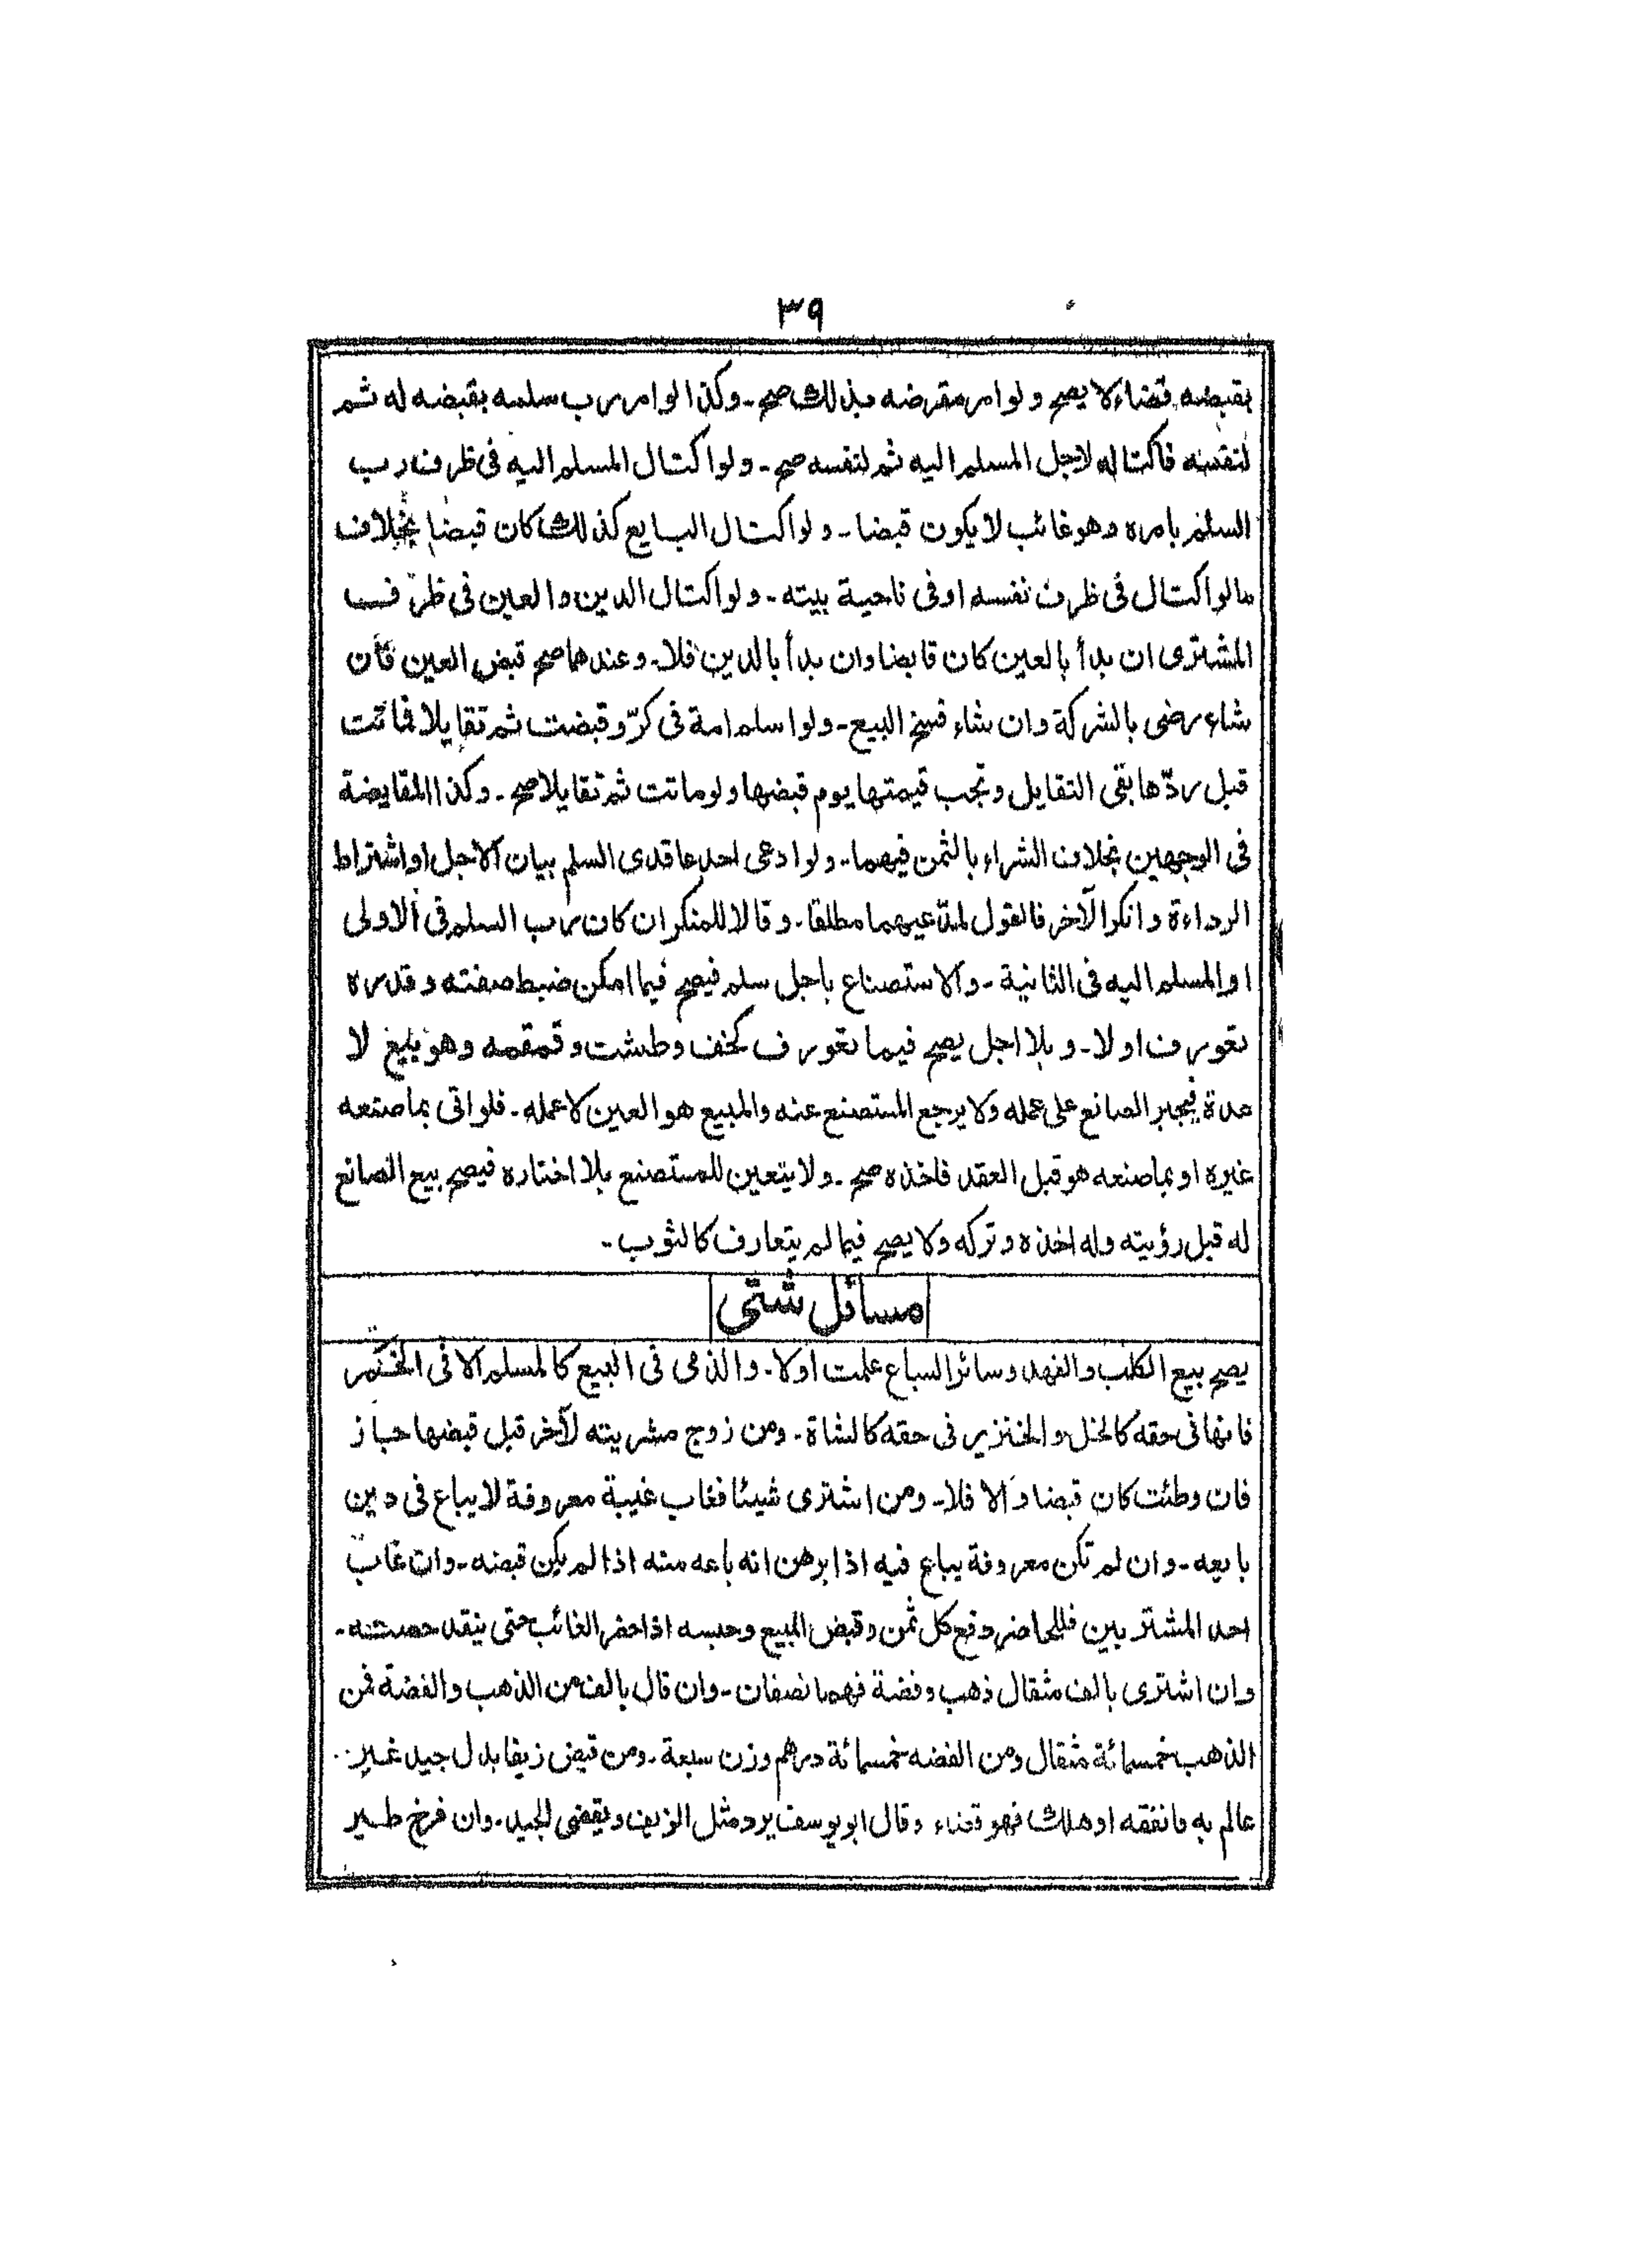 ٣٩
بقبضه قضاء لا يصح ولو امر مقرضه بذلك صح ـ وكذا لو امر رب سلمه بقبضه له ثم
لنفسه فاكتاله لاجل المسلم اليه ثم لنفسه صح ـ ولو اكتال المسلم اليه فى ظرف رب
السلم بامره وهو غائب لا يكون قبضا ـ ولو اكتال البايع كذلك كان قبضا بخلاف
مالو اكتال فى ظرف نفسه او فى ناحية بيته ـ ولو اكتال الدين والعين فى ظرف
المشترى ان بدأ بالعين كان قابضا وان بدأ بالدين فلا ـ وعندهما صح قبض العين فأن
شاء رضى بالشركة وان شاء فسخ البيع ـ ولو اسلم امة فى كرّ وقبضت ثم تقايلا فماتت
قبل ردّها بقى التقايل وتجب قيمتها يوم قبضها ولو ماتت ثم تقايلا صح ـ وكذا المقايضة
فى الوجهين بخلاف الشراء بالثمن فيهما ـ ولو ادعى احد عاقدى السلم بيان الاجل او اشتراط
الرداءة وانكر الآخر فالقول لمدّعيهما مطلقا ـ وقالا للمنكر ان كان رب السلم فى الاولى
او المسلم اليه فى الثانية ـ والاستصناع باجل سلم فيصح فيما امكن ضبط صفته وقدره
تعورف اولا ـ وبلا اجل يصح فيما تعورف كخف وطشت وقمقمه وهو بيع لا
عدة فيجبر الصانع على عمله ولا يرجع المستصنع عنه والمبيع هو العين لا عمله ـ فلو اتى بما صنعه
غيره او بما صنعه هو قبل العقد فاخذه صح ـ ولا يتعين للمستصنع بلا اختاره فيصح بيع الصانع
له قبل رؤيته وله اخذه وتركه ولا يصح فيما لم يتعارف كالثوب ـ
مسائل شتى
يصح بيع الكلب والفهد وسائر السباع علمت اولا ـ والذمى فى البيع كالمسلم الا فى الخمر
فانها فى حقه كالخل والخنزير فى حقه كالشاة ـ ومن زوج مشريته لآخر قبل قبضها جاز
فان وطئت كان قبضا والا فلا ـ ومن اشترى شيئا فغاب غيبة معروفة لا يباع فى دين
بايعه ـ وان لم تكن معروفة يباع فيه اذا برهن انه باعه منه اذا لم يكن قبضه ـ وان غاب
احد المشتريين فللحاضر دفع كل ثمن وقبض المبيع وحبسه اذا حضر الغائب حتى ينقد حصته ـ
وان اشترى بالف مثقال ذهب وفضة فهما نصفان ـ وان قال بالف من الذهب والفضة فمن
الذهب خمسمائة مثقال ومن الفضه خمسمائة درهم وزن سبعة ـ ومن قبض زيفا بدل جيد غير
عالم به فانفقه او هلك فهو قضاء وقال ابو يوسف يرد مثل الزيف ويقضى الجيد ـ وان فرخ طير